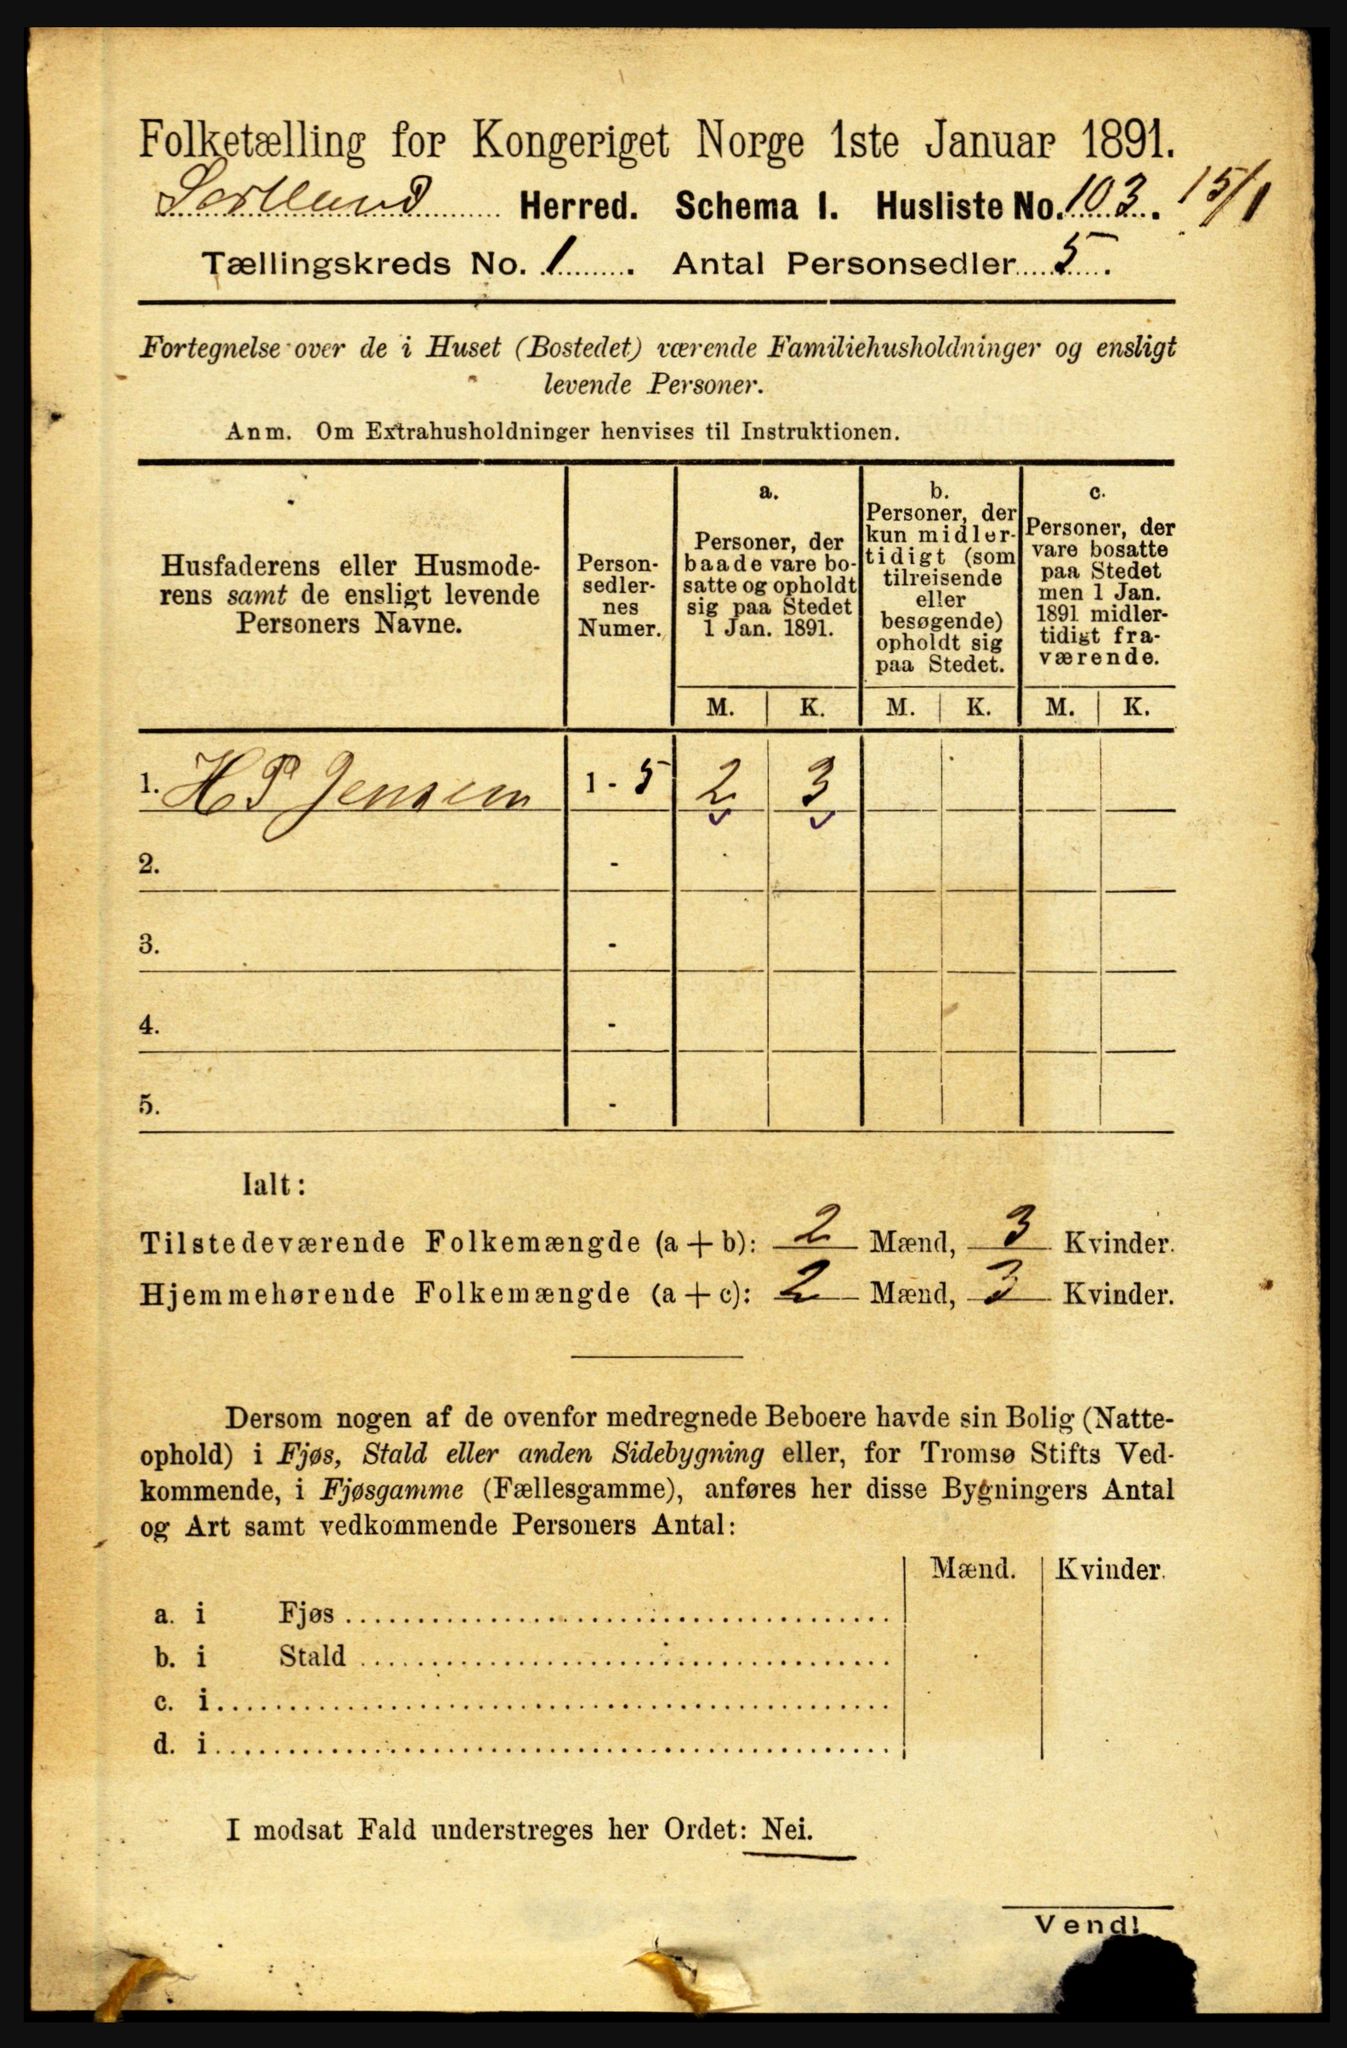 Folketælling for Kongeriget Norge 1ste Januar 1891.
Sortland Herred. Schema I. Husliste No. 103. 15/1
Tællingskreds No. 1. Antal Personsedler 5.
Fortegnelse over de i Huset (Bostedet) værende Familiehusholdninger og ensligt
levende Personer.
Anm. Om Extrahusholdninger henvises til Instruktionen.
Husfaderens eller Husmode-
rens samt de ensligt levende
Personers Navne.
Person-
sedler-
nes
Numer.
a.
Personer, der
baade vare bo-
satte og opholdt
sig paa Stedet
1 Jan. 1891.
b.
Personer, der
kun midler-
tidigt (som
tilreisende
eller
besøgende)
opholdt sig
paa Stedet.
c.
Personer, der
vare bosatte
paa Stedet
men 1 Jan.
1891 midler-
tidigt fra-
værende.
M. K. M. K. M. K.
1. H P Jensen 1 - 5 2 3
2. -
3. -
4. -
5. -
Ialt:
Tilstedeværende Folkemængde (a + b): 2 Mænd, 3 Kvinder.
Hjemmehørende Folkemængde (a + c): 2 Mænd, 3 Kvinder.
Dersom nogen af de ovenfor medregnede Beboere havde sin Bolig (Natte-
ophold) i Fjøs, Stald eller anden Sidebygning eller, for Tromsø Stifts Ved-
kommende, i Fjøsgamme (Fællesgamme), anføres her disse Bygningers Antal
og Art samt vedkommende Personers Antal:
Mænd. Kvinder.
a. i Fjøs
b. i Stald
c. i
d. i
I modsat Fald understreges her Ordet: Nei.
Vend!